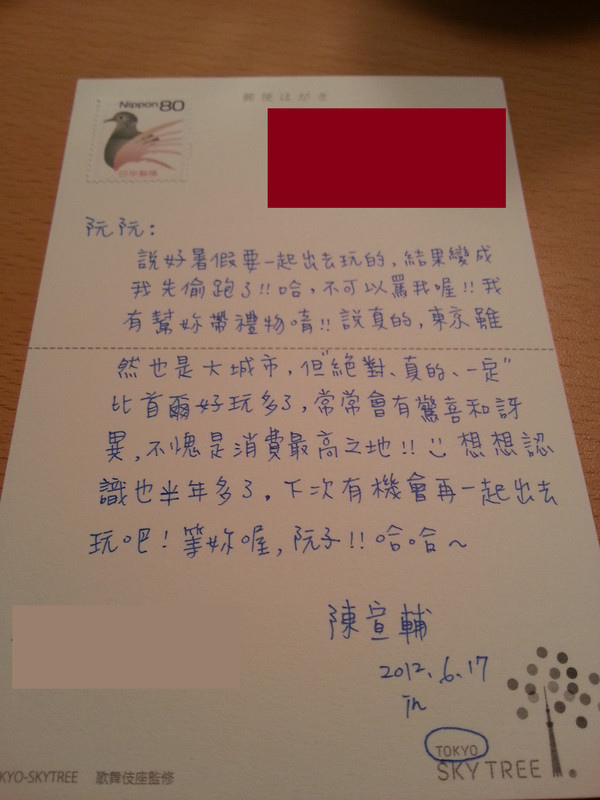 Nippon 80
日本郵便
郵便はがき
阮阮：
說好暑假要一起出去玩的，結果變成
我先偷跑了!!哈，不可以罵我喔!!我
有幫妳帶禮物唷!!說真的，東京雖
然也是大城市，但"絕對、真的、一定"
比首爾好玩多了，常常會有驚喜和訝
異，不愧是消費最高之地!! 想想認
識也半年多了，下次有機會再一起出去
玩吧！等妳喔，阮子!!哈哈～
陳宣輔
2012.6.17
in
TOKYO
SKYTREE
KYO-SKYTREE 歌舞伎座監修